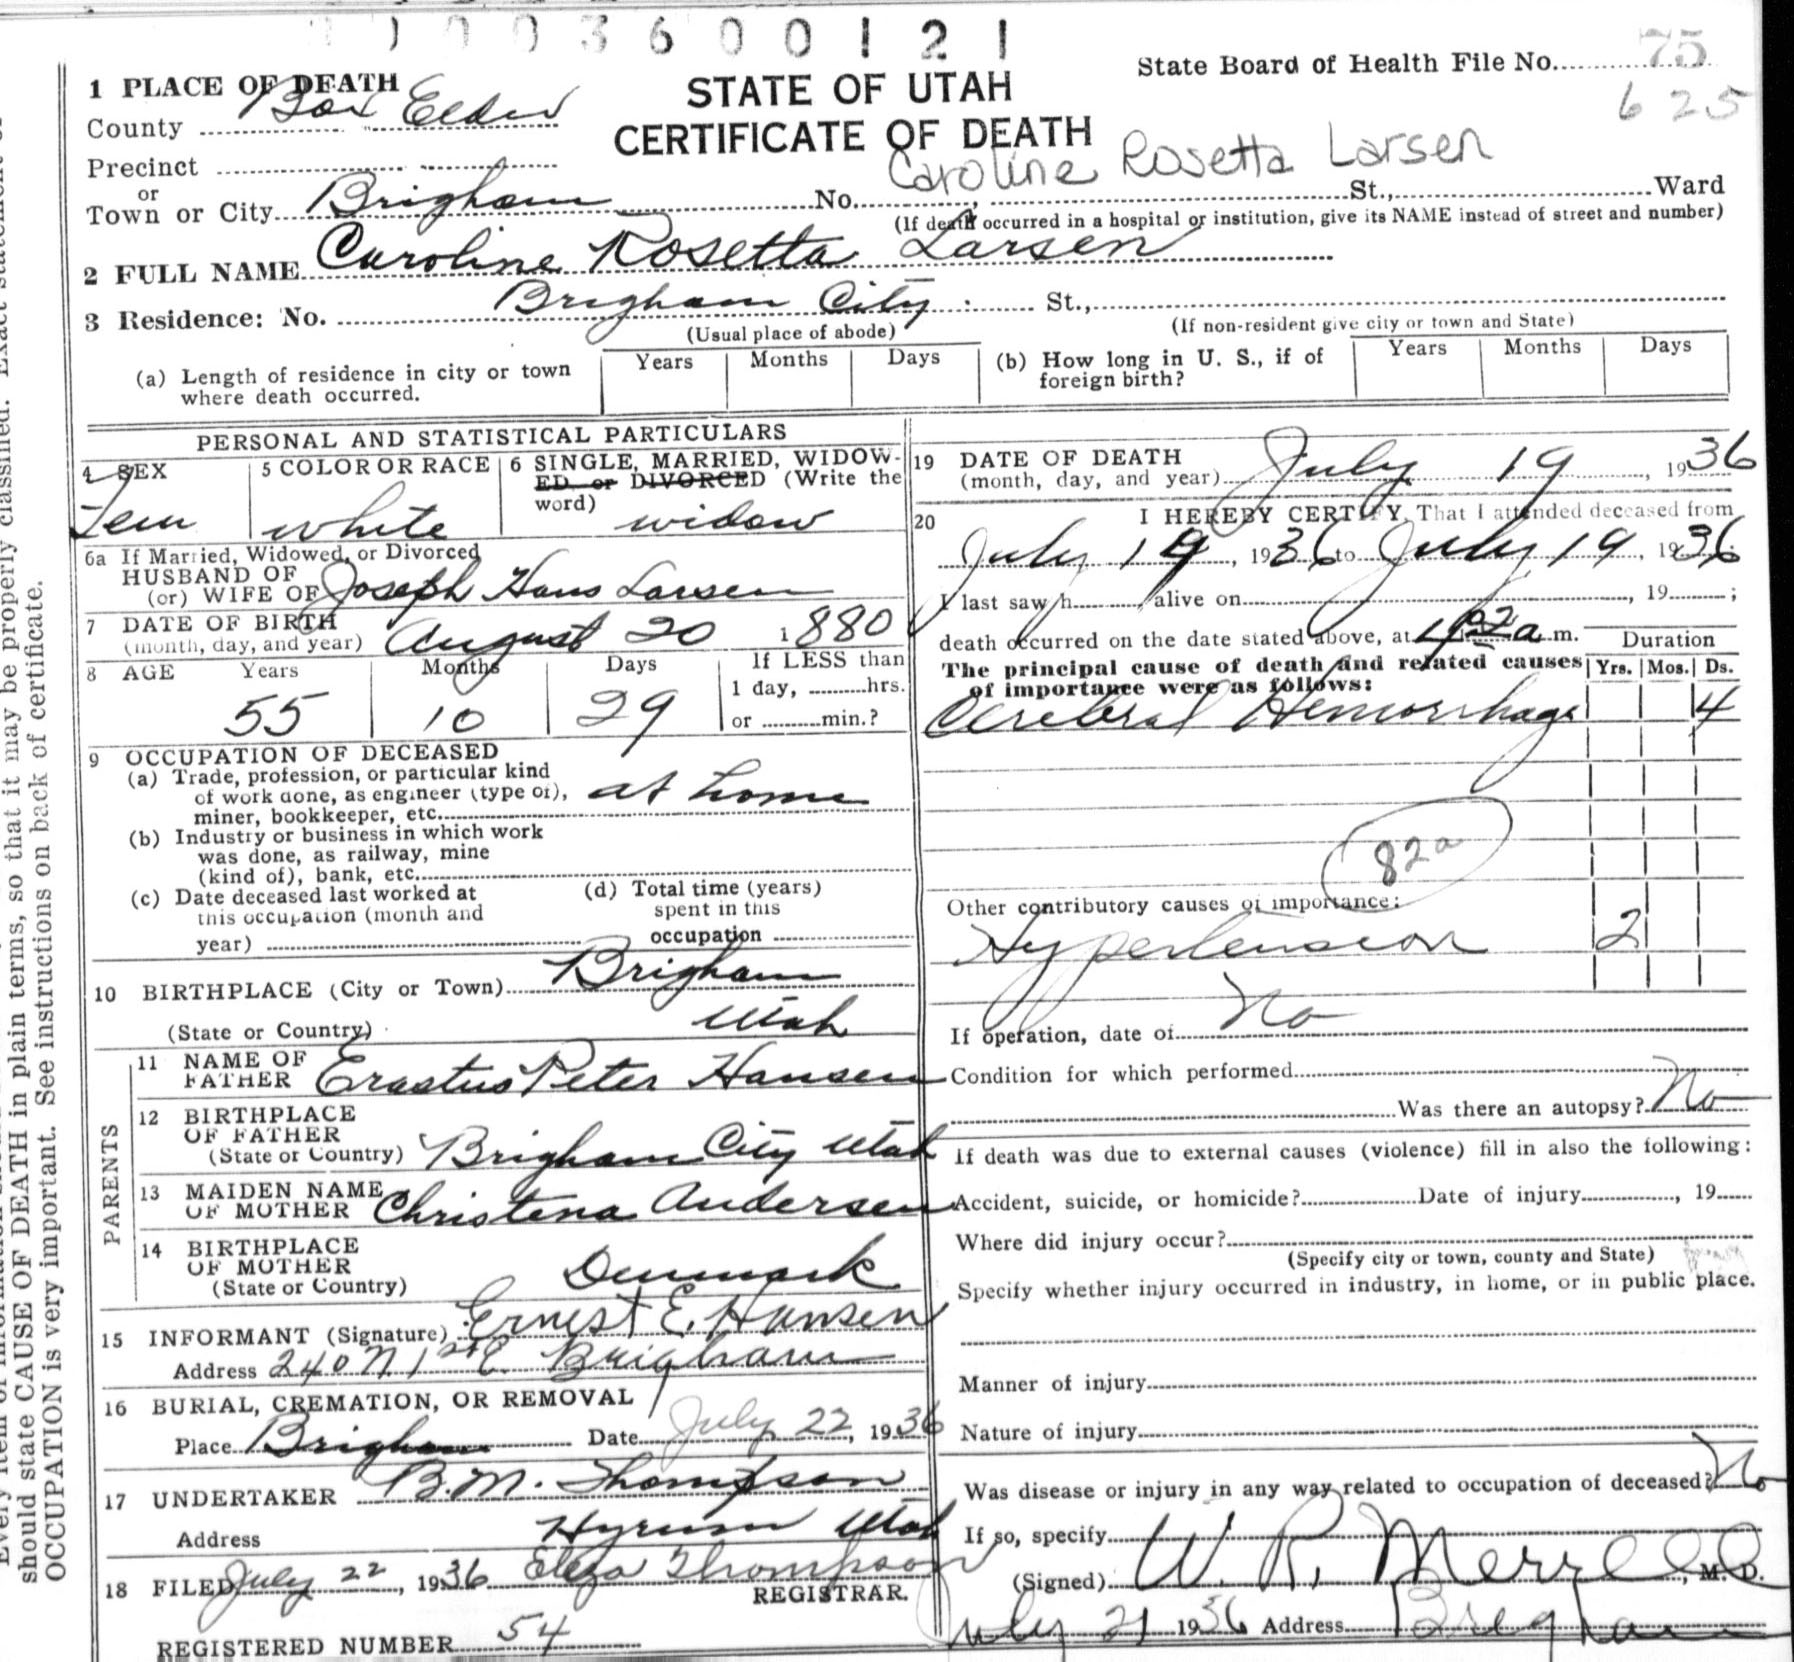 003600121
State Board of Health File No. 75
625
1 PLACE OF DEATH
County Box Elder
STATE OF UTAH
CERTIFICATE OF DEATH
Caroline Rosetta Larsen
Precinct
or
Town or City Brigham No. St., Ward
(If death occurred in a hospital or institution, give its NAME instead of street and number)
2 FULL NAME Caroline Rosetta Larsen
3 Residence: No. Brigham City St.,
(Usual place of abode) (If non-resident give city or town and State)
(a) Length of residence in city or town where death occurred. Years Months Days (b) How long in U. S., if of foreign birth? Years Months Days
PERSONAL AND STATISTICAL PARTICULARS
4 SEX 5 COLOR OR RACE 6 SINGLE, MARRIED, WIDOW-
ED or DIVORCED (Write the
word)
Fem white widow
6a If Married, Widowed, or Divorced
HUSBAND OF
(or) WIFE OF Joseph Hans Larsen
7 DATE OF BIRTH
(month, day, and year) August 20 1880
8 AGE Years Months Days If LESS than
1 day, hrs.
55 10 29 or min.?
9 OCCUPATION OF DECEASED
(a) Trade, profession, or particular kind
of work done, as engineer (type of), at home
miner, bookkeeper, etc.
(b) Industry or business in which work
was done, as railway, mine
(kind of), bank, etc.
(c) Date deceased last worked at (d) Total time (years)
this occupation (month and spent in this
year) occupation
10 BIRTHPLACE (City or Town) Brigham
(State or Country) Utah
PARENTS
11 NAME OF
FATHER Erastus Peter Hansen
12 BIRTHPLACE
OF FATHER
(State or Country) Brigham City Utah
13 MAIDEN NAME
OF MOTHER Christena Andersen
14 BIRTHPLACE
OF MOTHER
(State or Country) Denmark
15 INFORMANT (Signature) Ernest E. Hansen
Address 240 N 1st E Brigham
16 BURIAL, CREMATION, OR REMOVAL
Place Brigham Date July 22, 1936
17 UNDERTAKER B.M. Thompson
Address Hyrum Utah
18 FILED July 22, 1936 Eliza Thompson
REGISTRAR.
REGISTERED NUMBER 54
19 DATE OF DEATH
(month, day, and year) July 19, 1936
20 I HEREBY CERTIFY, That I attended deceased from
July 19, 1936 to July 19, 1936
I last saw h alive on, 19 ;
death occurred on the date stated above, at a m. Duration
The principal cause of death and related causes Yrs. Mos. Ds.
of importance were as follows:
Cerebral Hemorrhage 4
82a
Other contributory causes of importance:
Hypertension 2
If operation, date of No
Condition for which performed
Was there an autopsy? No
If death was due to external causes (violence) fill in also the following:
Accident, suicide, or homicide? Date of injury, 19
Where did injury occur?
(Specify city or town, county and State)
Specify whether injury occurred in industry, in home, or in public place.
Manner of injury
Nature of injury
Was disease or injury in any way related to occupation of deceased? No
If so, specify
(Signed) W. R. Merrell, M. D.
July 21 1936 Address Brigham
should state CAUSE OF DEATH in plain terms, so that it may be properly classified. Exact statement of
OCCUPATION is very important. See instructions on back of certificate.